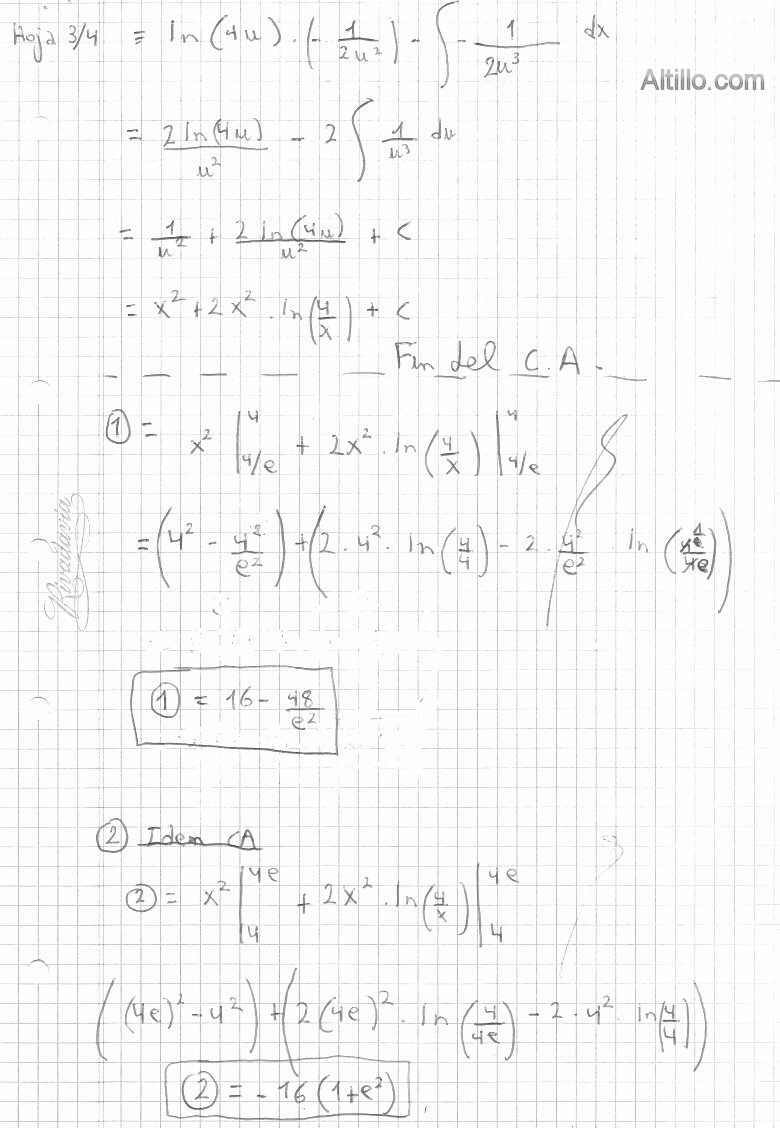 Hoja 3/4 = ln(4u) · (- 1/2u²) - ∫ - 1/2u³ dx
Altillo.com
= 2 ln(4u)/u² - 2 ∫ 1/u³ du
= 1/u² + 2 ln(4u)/u² + C
= x² + 2x² · ln(4/x) + C
Fin del C.A.
① = x² |₄/ₑ⁴ + 2x² · ln(4/x) |₄/ₑ⁴
= (4² - 4²/e²) + (2 · 4² · ln(4/4) - 2 · 4²/e² ln( ))
Rivadavia
① = 16 - 48/e²
② Idem CA
② = x² |₄⁴ᵉ + 2x² · ln(4/x) |₄⁴ᵉ
((4e)² - 4²) + (2(4e)² · ln(4/4e) - 2 · 4² · ln(4/4))
② = -16(1+e²)